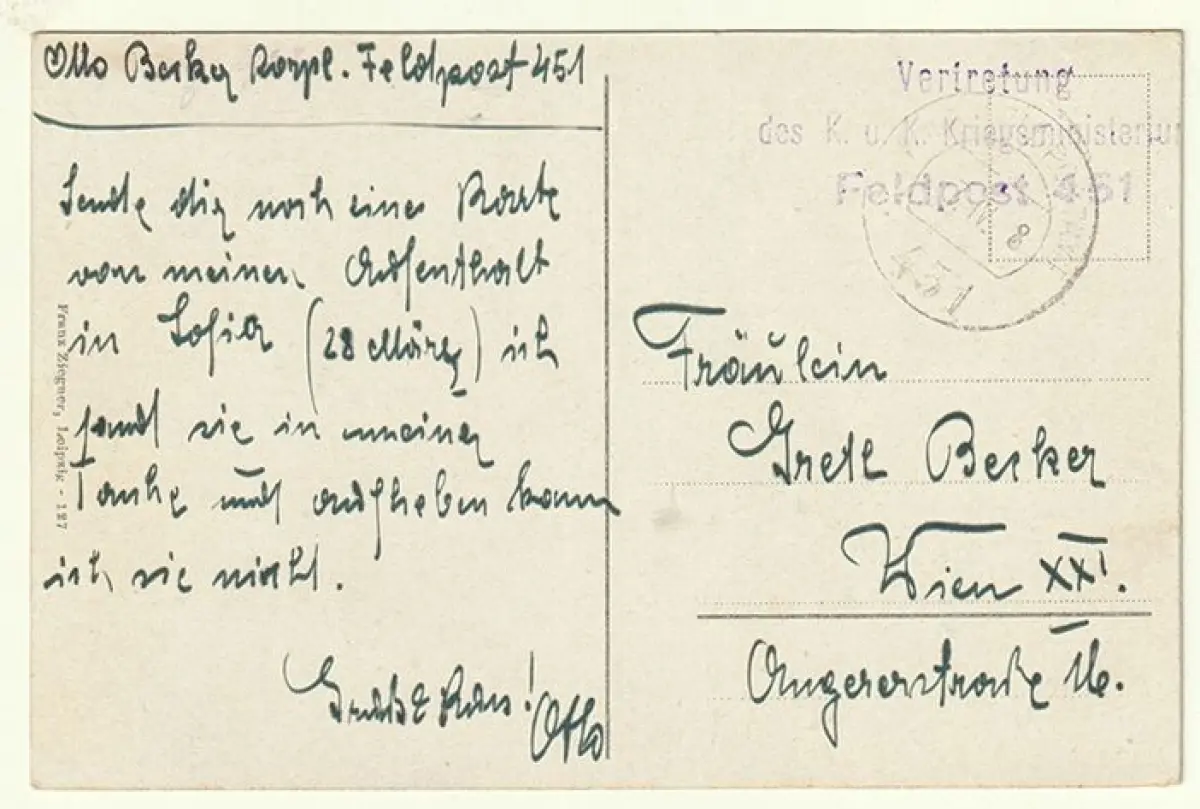 Otto Becker Korpl. Feldpost 451
Sende dir noch eine Karte
von meinem Aufenthalt
in Sofia (28 März) ich
fand sie in meiner
und aufheben kann
ich sie nicht.
Gruß & Kuss! Otto
Franz Ziegner, Leipzig - 127
Vertretung
des K. u. K. Kriegsministerium
Feldpost 451
451
Fräulein
Gretl Becker
Wien XXI.
Angererstraße 16.